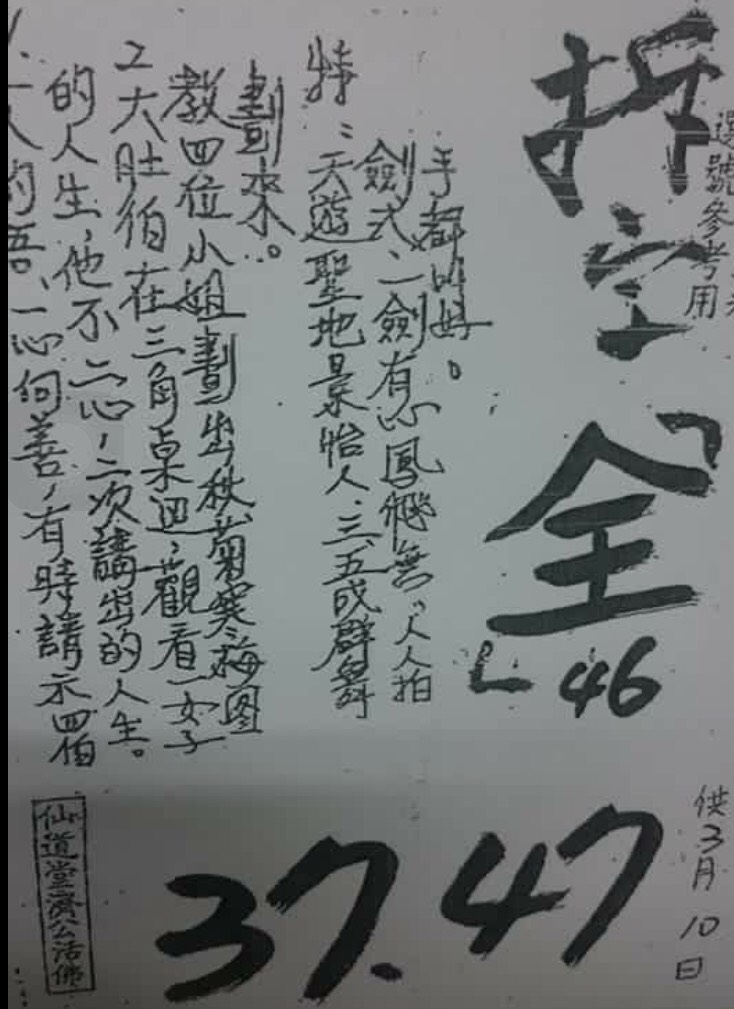 選號參考用
供3月10日
拆字「全」46
37.47
手都叫好。
劍式、一劍有心鳳飛無,人人拍
特:天遊聖地景怡人、三、五成群舞
劃來。
教四位小姐劃出秋菊寒梅图
2大肚伯在三角桌迴,觀看一女子
的人生,他不二心,二次講出的人生。
人的吾、一心向善,有時請示四伯
仙道堂濟公活佛